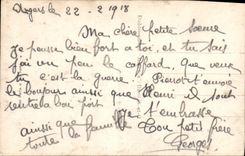 Angers le 22 - 2 1918
Ma chère petite sœur
Je pense bien fort a toi, et tu sais
j'ai un peu le caffard, que veux
tu c'est la guerre. Pierrot t'envoie
le bonjour aussi que Henri il sont
bon fort
t'embrasse
ainsi que Ton petit frère
toute la famille Georges